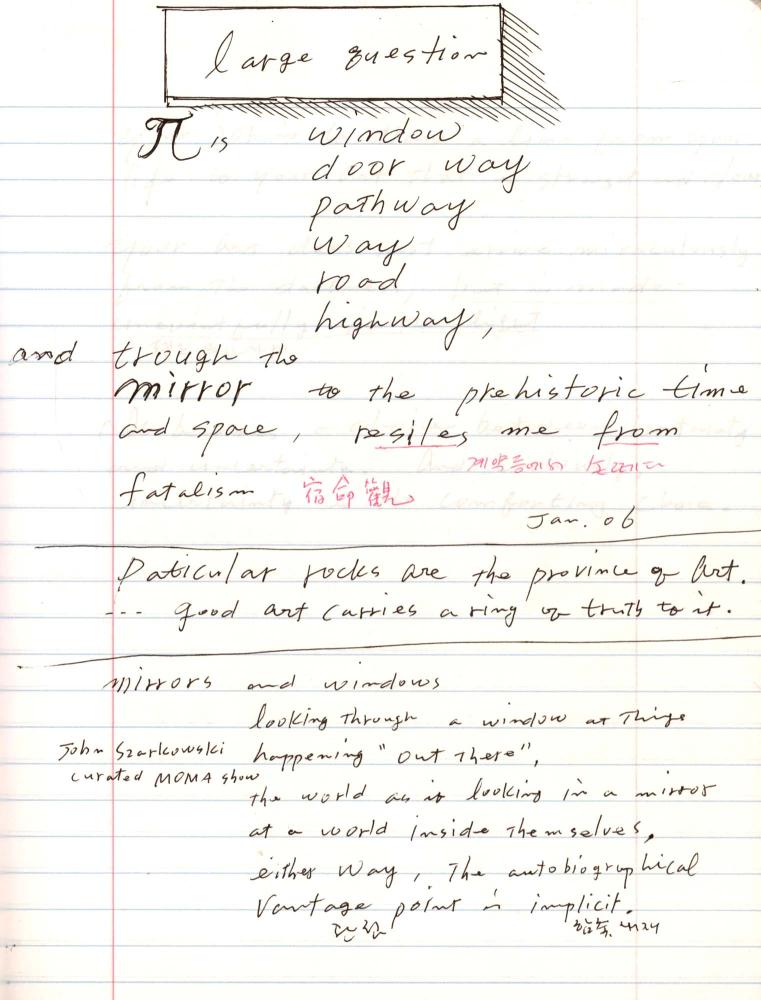 large question
π is window
door way
pathway
way
road
highway,
and trough the
mirror to the prehistoric time
and space, resiles me from
계약등에서 손떼다
fatalism 宿命觀
Jan. 06
Paticular rocks are the province of Art.
... good art carries a ring of truth to it.
mirrors and windows
looking through a window at things
John Szarkowski happening "out there",
curated MOMA show
the world as if looking in a mirror
at a world inside themselves,
either way, The autobiographical
vantage point is implicit.
함축, 내재